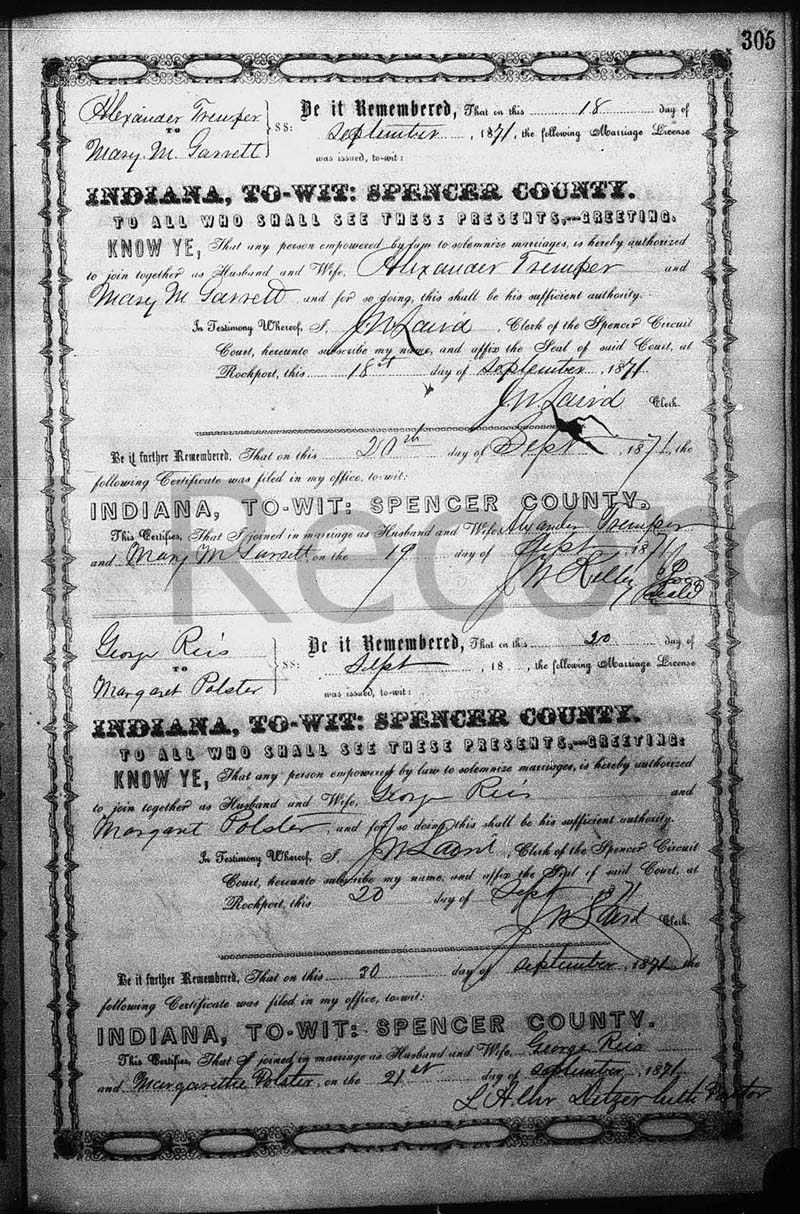 305
Alexander Tremper
TO
Mary. M. Garrett
SS:
Be it Remembered, That on this 18 day of
September, 1871, the following Marriage License
was issued, to-wit:
INDIANA, TO-WIT: SPENCER COUNTY.
TO ALL WHO SHALL SEE THESE PRESENTS,—GREETING:
KNOW YE, That any person empowered by law to solemnize marriages, is hereby authorized
to join together as Husband and Wife, Alexander Tremper and
Mary M Garrett and for so doing, this shall be his sufficient authority.
In Testimony Whereof, I, J W Laird, Clerk of the Spencer Circuit
Court, hereunto subscribe my name, and affix the Seal of said Court, at
Rockport, this 18st day of September, 1871.
J W Laird Clerk.
Be it further Remembered, That on this 20th day of Sept, 1871, the
following Certificate was filed in my office, to-wit:
INDIANA, TO-WIT: SPENCER COUNTY.
This Certifies, That I joined in marriage as Husband and Wife, Alexander Tremper
and Mary M Garrett, on the 19 day of Sept, 1871
J W Kelley
Seal
Record
George Reis
TO
Margaret Polster
SS:
Be it Remembered, That on this 20 day of
Sept, 18 , the following Marriage License
was issued, to-wit:
INDIANA, TO-WIT: SPENCER COUNTY.
TO ALL WHO SHALL SEE THESE PRESENTS,—GREETING:
KNOW YE, That any person empowered by law to solemnize marriages, is hereby authorized
to join together as Husband and Wife, George Reis and
Margaret Polster, and for so doing, this shall be his sufficient authority.
In Testimony Whereof, I, J W Laird, Clerk of the Spencer Circuit
Court, hereunto subscribe my name, and affix the Seal of said Court, at
Rockport, this 20 day of Sept 1871
J W Laird Clerk.
Be it further Remembered, That on this 30 day of September, 1871 the
following Certificate was filed in my office, to-wit:
INDIANA, TO-WIT: SPENCER COUNTY.
This Certifies, That I joined in marriage as Husband and Wife, George Reis
and Margarethe Polster, on the 21st day of September, 1871.
Detzer Luth Pastor